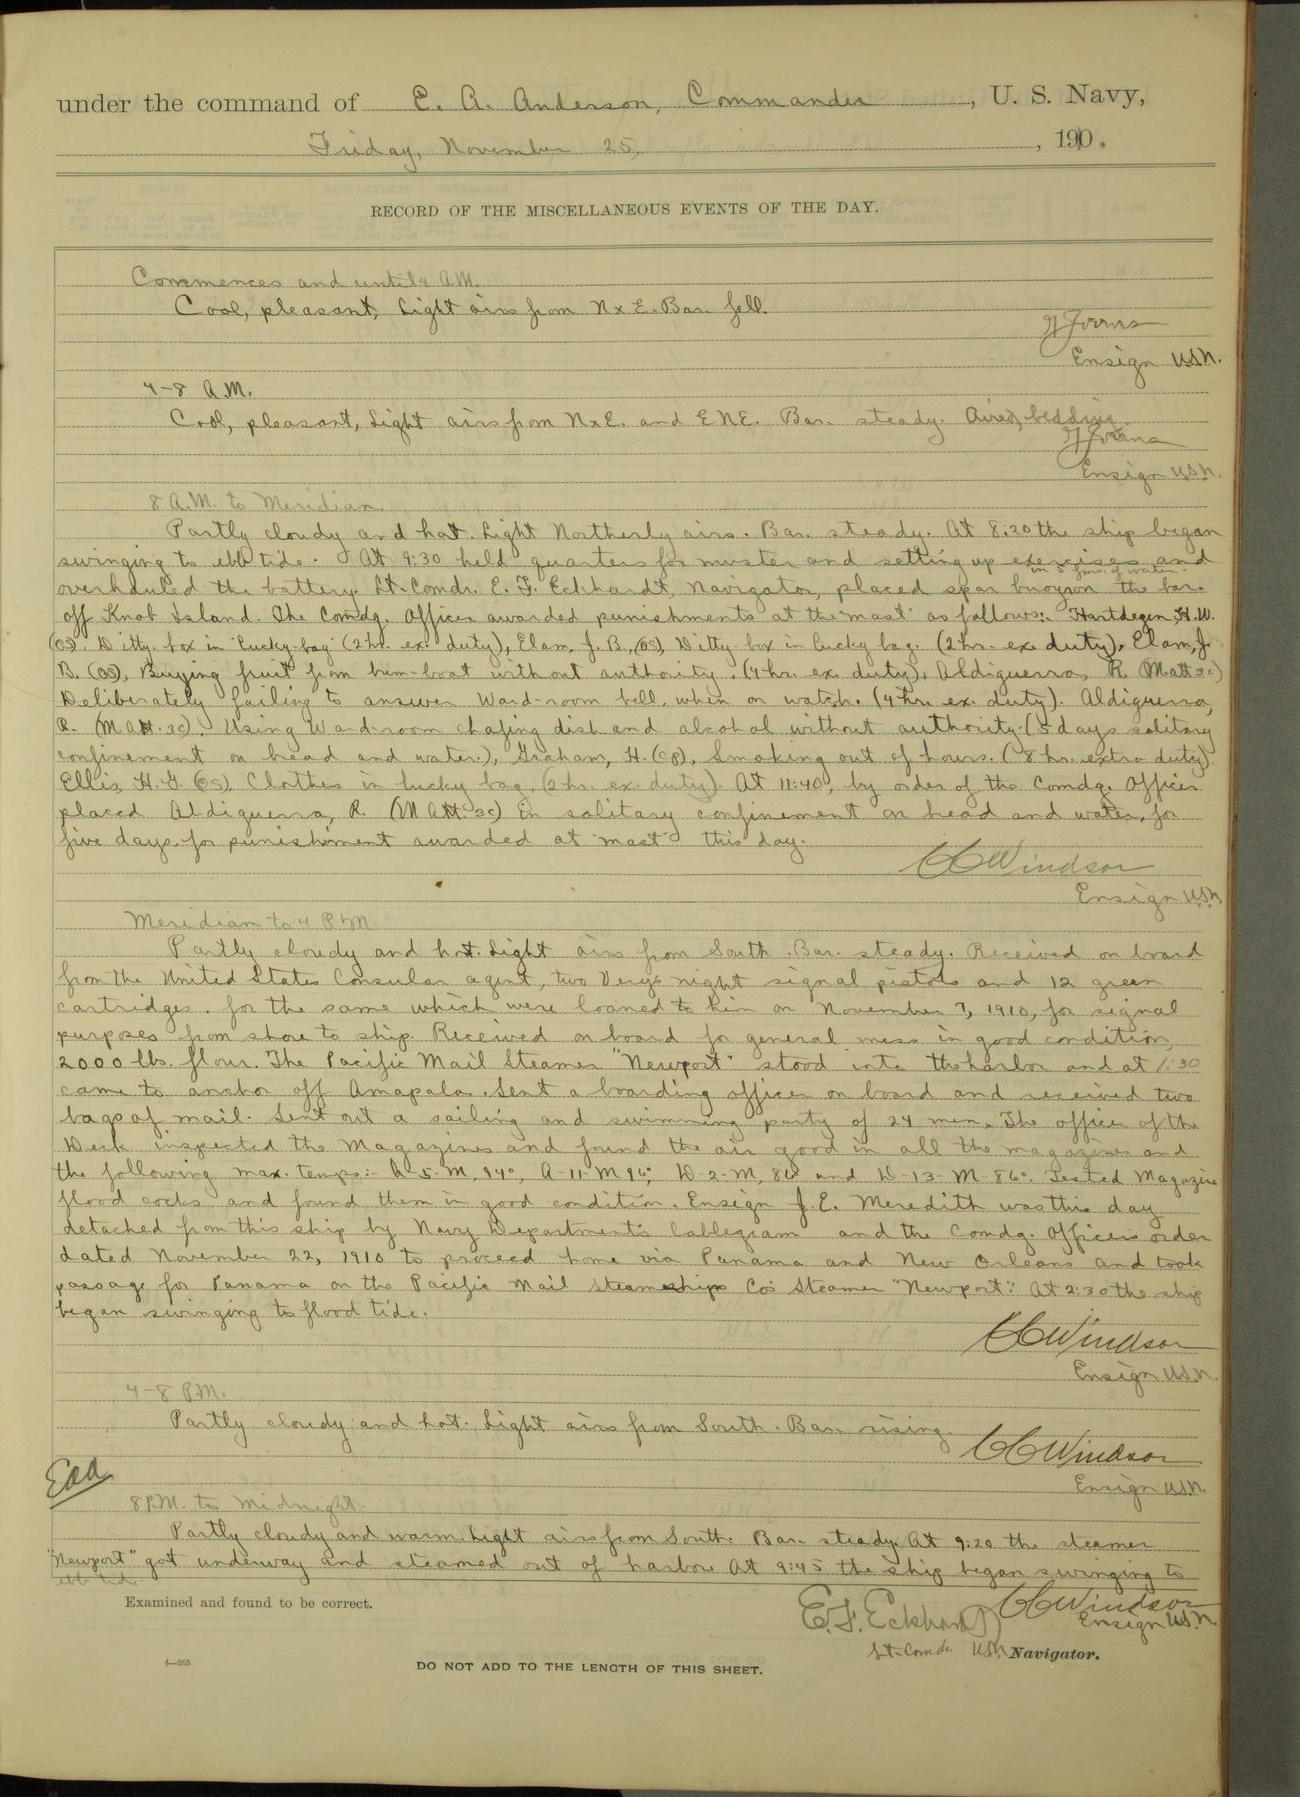 under the command of E. A. Anderson, Commander, U. S. Navy,
Friday, November 25, 1910.
RECORD OF THE MISCELLANEOUS EVENTS OF THE DAY.
Commences and until 4 A.M.
Cool, pleasant, Light airs from NxE. Bar. fell.
Ensign USN.
4-8 A.M.
Cool, pleasant, Light airs from NxE. and ENE. Bar. steady. Aired bedding.
Ensign USN.
8 A.M. to Meridian.
Partly cloudy and hot. Light Northerly airs. Bar. steady. At 8:20 the ship began
swinging to ebb tide. At 9:30 held quarters for muster and setting up exercises and
overhauled the battery. Lt-Comdr. E. F. Eckhardt, Navigator, placed spar buoy in 5 fms. of water on the bar
off Knob Island. The Comdg. Officer awarded punishments at the "mast" as follows:- Hartdegen, H. W.
(OS). Ditty-box in "lucky-bag" (2 hr. ex. duty), Elam, J. B., (OS), Ditty-box in lucky bag. (2 hr. ex. duty), Elam, J.
B. (OS), Buying fruit from bum-boat without authority. (4 hr. ex. duty), Aldiguerra, R. (Matt 3c)
Deliberately failing to answer Ward-room bell, when on watch. (4 hr. ex. duty). Aldiguerra,
R. (MAtt. 3c). Using Ward-room chafing dish and alcohol without authority. (5 days solitary
confinement on bread and water.), Graham, H. (CP), Smoking out of hours. (8 hr. extra duty).
Ellis, H. G. (OS), Clothes in lucky bag, (2 hr. ex. duty). At 11:40, by order of the Comdg. Officer
placed Aldiguerra, R. (MAtt 3c) in solitary confinement on bread and water, for
five days, for punishment awarded at "mast" this day.
C C Windsor
Ensign USN
Meridian to 4 P.M.
Partly cloudy and hot. Light airs from South. Bar. steady. Received on board
from the United States Consular agent, two Very's night signal pistols and 12 green
cartridges. for the same which were loaned to him on November 7, 1910, for signal
purposes from shore to ship. Received on board for general mess in good condition,
2000 lbs. flour. The Pacific Mail Steamer "Newport" stood into the harbor and at 1:30
came to anchor off Amapala. Sent a boarding officer on board and received two
bags of mail. Sent out a sailing and swimming party of 24 men. The officer of the
Deck inspected the Magazines and found the air good in all the magazines and
the following max. temps:- A-5-M, 94°, A-11-M 96°, D-2-M, 86° and D-13-M-86°. Tested Magazine
flood cocks and found them in good condition. Ensign J. E. Meredith was this day
detached from this ship by Navy Department's Cablegram and the Comdg. Officers order
dated November 22, 1910 to proceed home via Panama and New Orleans and took
passage for Panama on the Pacific Mail Steamships Co's Steamer "Newport". At 2:30 the ship
began swinging to flood tide.
C C Windsor
Ensign USN.
4-8 P.M.
Partly cloudy and hot. Light airs from South. Bar. rising.
C C Windsor
Ensign USN.
8 P.M. to Midnight.
Partly cloudy and warm. Light airs from South. Bar. steady. At 9:20 the steamer
"Newport" got underway and steamed out of harbor. At 9:45 the ship began swinging to
ebb tide.
C C Windsor
Ensign USN.
Examined and found to be correct.
E. F. Eckhardt
Lt-Comdr. USN Navigator.
DO NOT ADD TO THE LENGTH OF THIS SHEET.